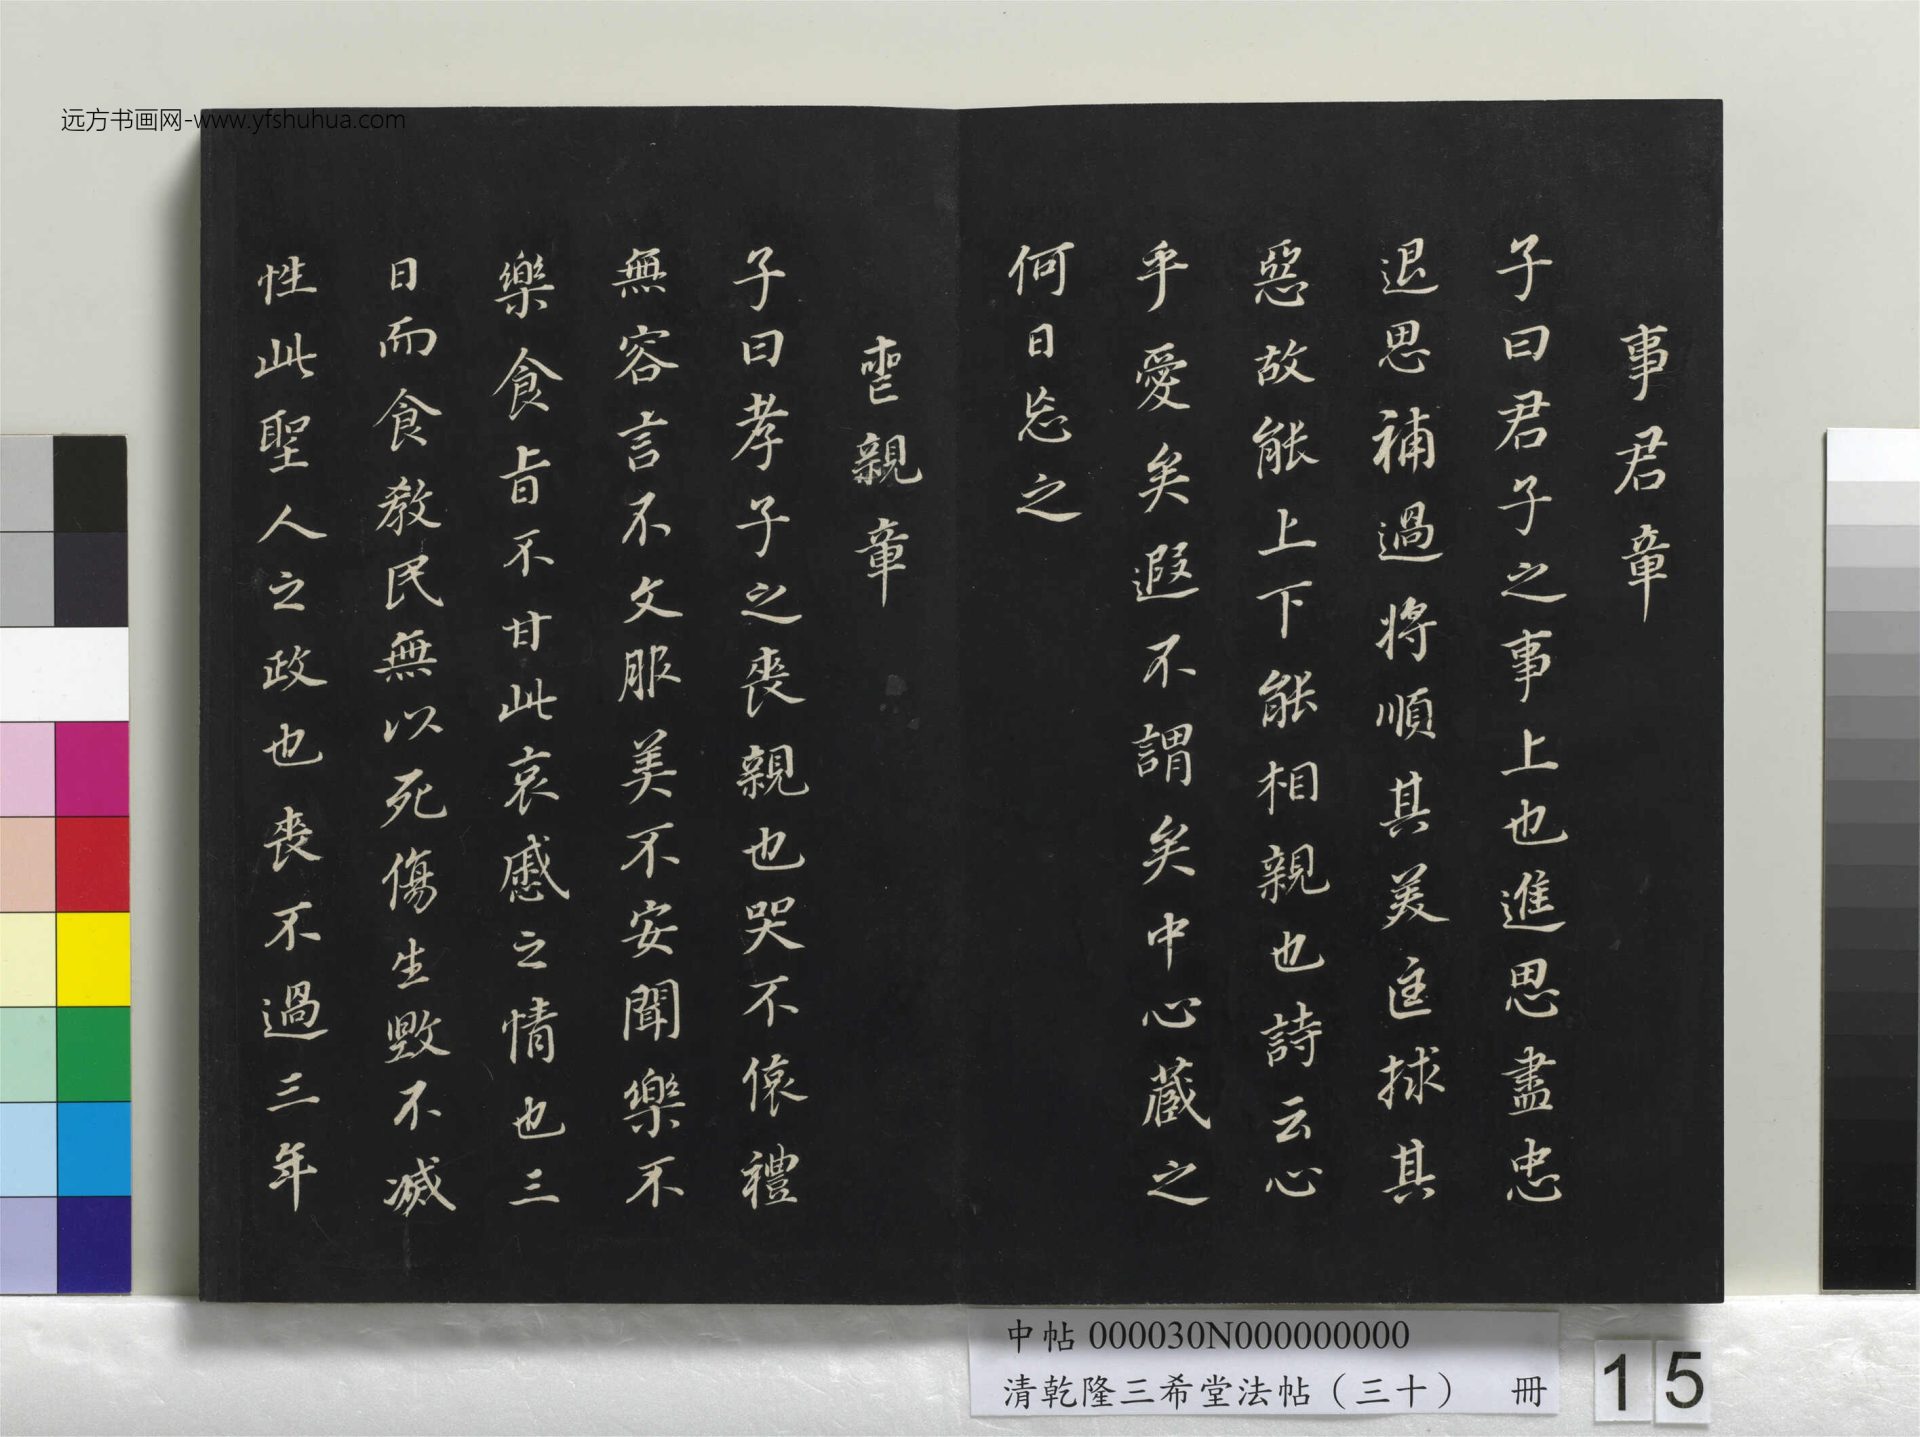 远方书画网-www.yfshuhua.com
事君章
子曰君子之事上也進思盡忠
退思補過將順其美匡捄其
惡故能上下能相親也詩云心
乎愛矣遐不謂矣中心藏之
何日忘之
喪親章
子曰孝子之喪親也哭不偯禮
無容言不文服美不安聞樂不
樂食旨不甘此哀慼之情也三
日而食教民無以死傷生毀不滅
性此聖人之政也喪不過三年
中帖 000030N000000000
清乾隆三希堂法帖（三十） 冊
15